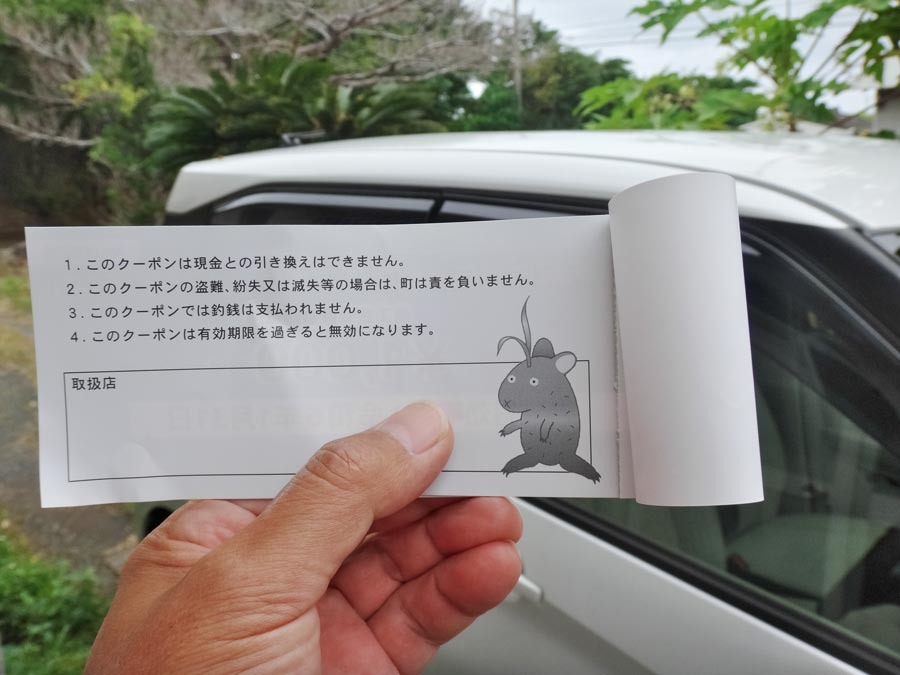 1. このクーポンは現金との引き換えはできません。
2. このクーポンの盗難、紛失又は滅失等の場合は、町は責を負いません。
3. このクーポンでは釣銭は支払われません。
4. このクーポンは有効期限を過ぎると無効になります。
取扱店